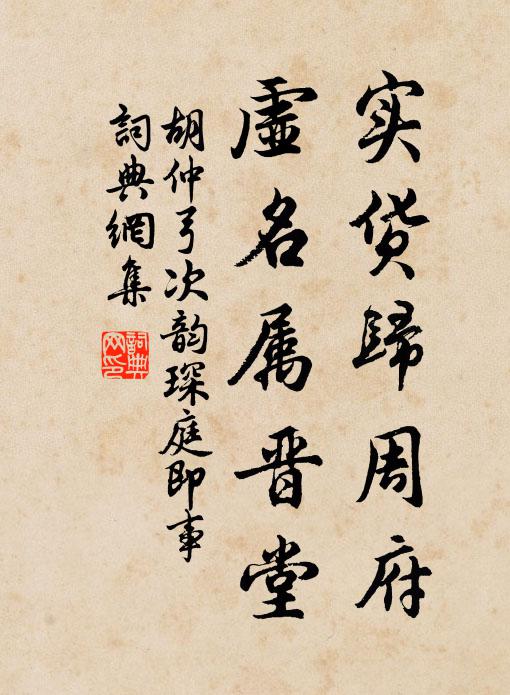 实货歸周府
虚名属晋堂
胡仲弓次韵琛庭即事
詞典網集
詞典网印